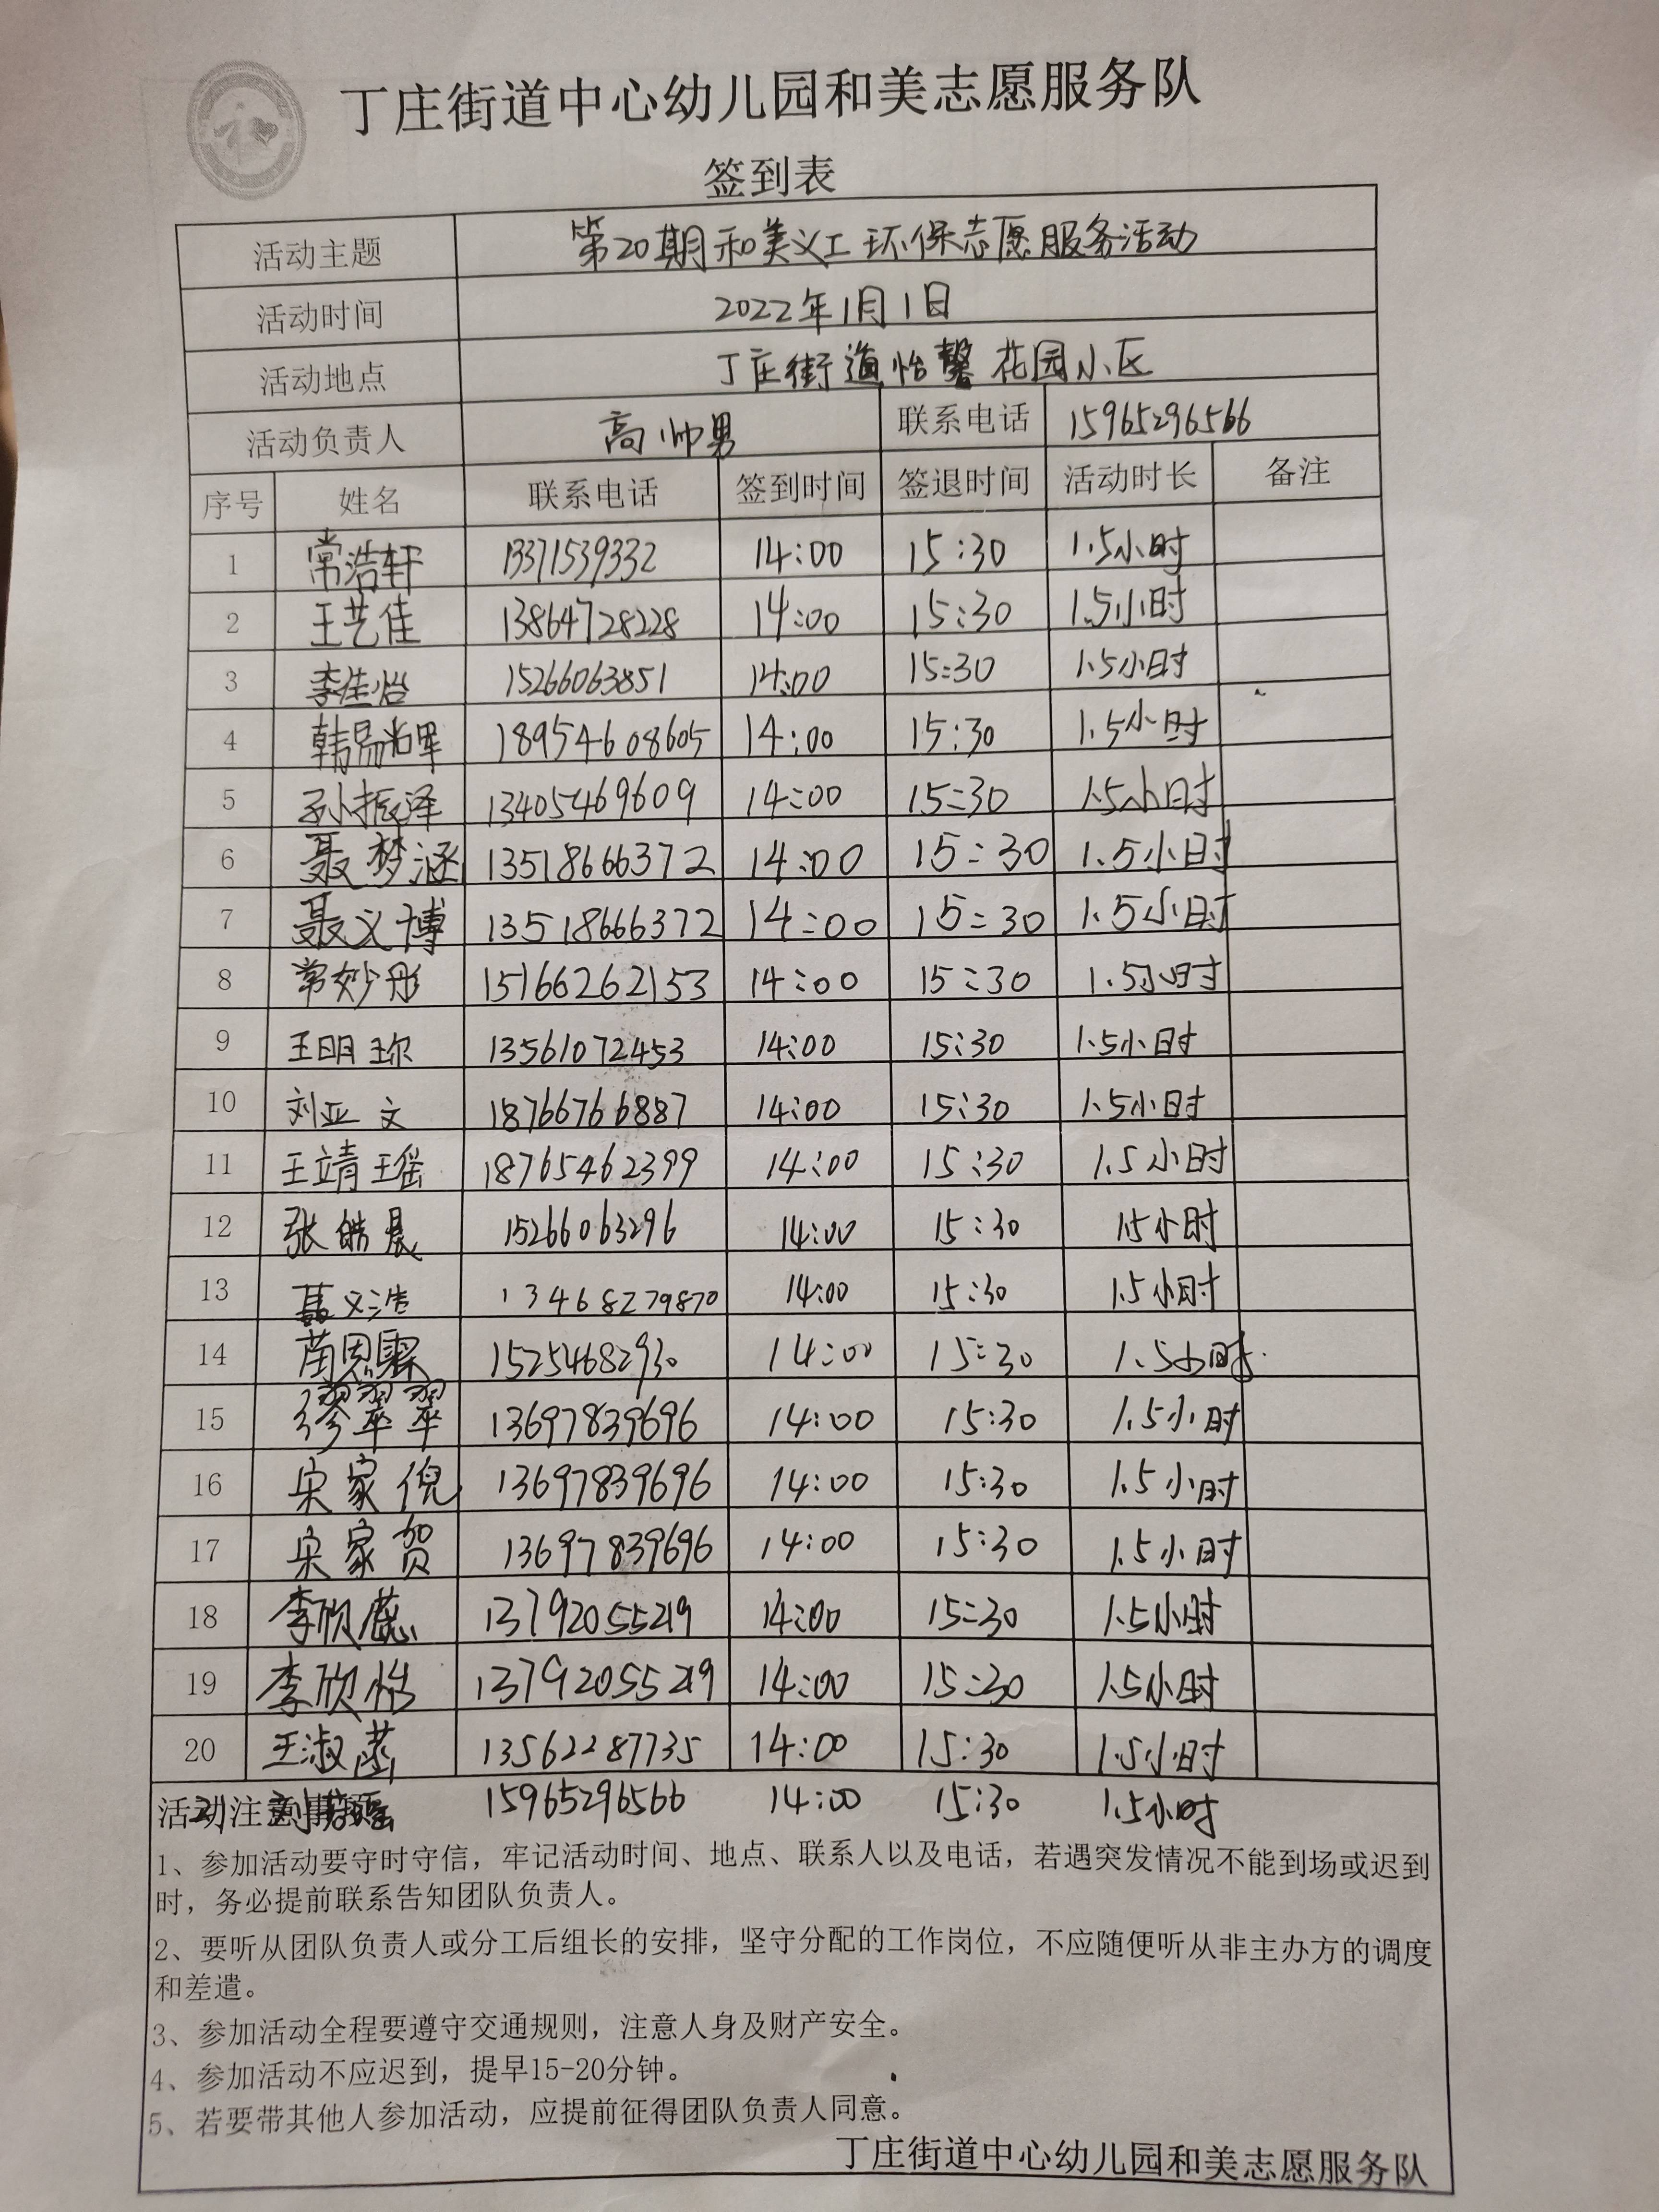 丁庄街道中心幼儿园和美志愿服务队
签到表
活动主题 第20期和美义工环保志愿服务活动
活动时间 2022年1月1日
活动地点 丁庄街道怡馨花园小区
活动负责人 高帅男 联系电话 15965296566
序号 姓名 联系电话 签到时间 签退时间 活动时长 备注
1 常浩轩 13371539332 14:00 15:30 1.5小时
2 王艺佳 13864728228 14:00 15:30 1.5小时
3 李佳怡 15266063851 14:00 15:30 1.5小时
4 韩易 18954608605 14:00 15:30 1.5小时
5 孙振泽 13405469609 14:00 15:30 1.5小时
6 聂梦涵 13518666372 14:00 15:30 1.5小时
7 聂义博 13518666372 14:00 15:30 1.5小时
8 常妙彤 15166262153 14:00 15:30 1.5小时
9 王明珎 13561072453 14:00 15:30 1.5小时
10 刘亚文 18766766887 14:00 15:30 1.5小时
11 王靖瑶 18765462399 14:00 15:30 1.5小时
12 张皓晨 15266063296 14:00 15:30 1.5小时
13 聂义浩 13468279870 14:00 15:30 1.5小时
14 蔺恩霖 15254682930 14:00 15:30 1.5小时
15 缪翠翠 13697839696 14:00 15:30 1.5小时
16 宋家倪 13697839696 14:00 15:30 1.5小时
17 宋家贺 13697839696 14:00 15:30 1.5小时
18 李欣蕊 13792055219 14:00 15:30 1.5小时
19 李欣怡 13792055219 14:00 15:30 1.5小时
20 王淑菡 13562287735 14:00 15:30 1.5小时
活动注意事项
21 刘 15965296566 14:00 15:30 1.5小时
1、参加活动要守时守信，牢记活动时间、地点、联系人以及电话，若遇突发情况不能到场或迟到
时，务必提前联系告知团队负责人。
2、要听从团队负责人或分工后组长的安排，坚守分配的工作岗位，不应随便听从非主办方的调度
和差遣。
3、参加活动全程要遵守交通规则，注意人身及财产安全。
4、参加活动不应迟到，提早15-20分钟。
5、若要带其他人参加活动，应提前征得团队负责人同意。
丁庄街道中心幼儿园和美志愿服务队